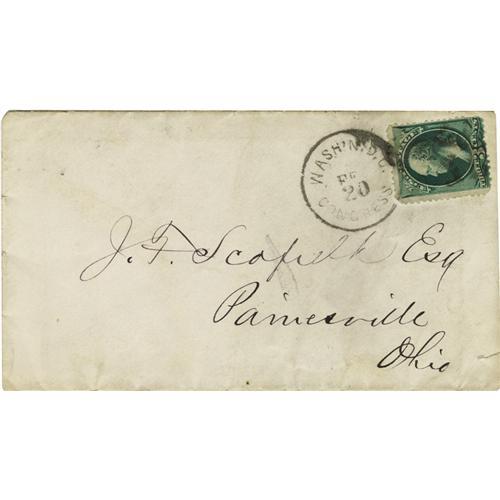 WASH'N.D.C.
FE
20
CONGRESS
J. F. Scofield Esq
Painesville
Ohio